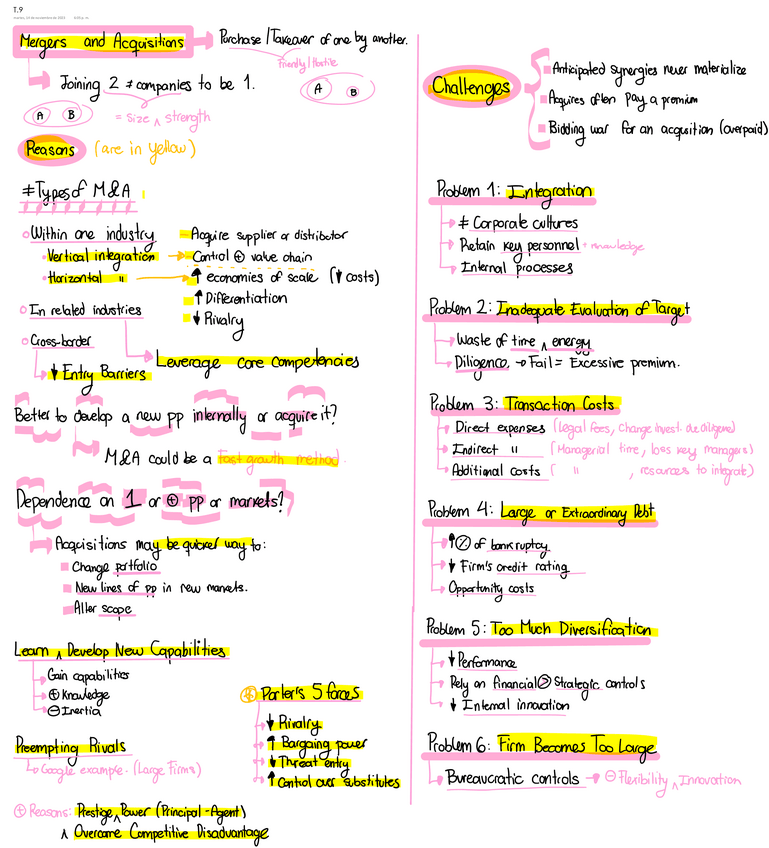 T.9
Mergers and Acquisitions → Purchase / Takeover of one by another.
Friendly / Hostile
Joining 2 ≠ companies to be 1.
A B
A B
= Size ∧ strength
Reasons (are in yellow)
≠ Types of M&A
Within one industry
Vertical integration →
Horizontal " →
Acquire supplier or distributor
Control ⊕ value chain
↑ economies of scale (↓ costs)
↑ Differentiation
↓ Rivalry
In related industries
Leverage core competencies
Cross-border
↓ Entry Barriers
Better to develop a new pp internally or acquire it?
M&A could be a fast growth method.
Dependence on 1 or ⊕ pp or markets?
Acquisitions may be quicker way to:
Change portfolio
New lines of pp in new markets.
Alter scope
Learn ∧ Develop New Capabilities
Gain capabilities
⊕ Knowledge
⊖ Inertia
Preempting Rivals
Google example. (Large Firms)
Porter's 5 forces
↓ Rivalry
↑ Bargaing power
↓ Threat entry
↑ Control over substitutes
⊕ Reasons: Prestige ∧ Power (Principal-Agent)
∧ Overcome Competitive Disadvantage
Challenges
Anticipated synergies never materialize
Acquires often pay a premium
Bidding war for an acquition (overpaid)
Problem 1: Integration
≠ Corporate cultures
Retain key personnel + knowledge
Internal processes
Problem 2: Inadequate Evaluation of Target
Waste of time ∧ energy
Diligence → Fail = Excessive premium.
Problem 3: Transaction Costs
Direct expenses (legal fees, change invest. due diligence)
Indirect " (Managerial time, loss key managers)
Additional costs ( " , resources to integrate)
Problem 4: Large or Extraordinary Debt
↑ of bankruptcy
↓ Firm's credit rating
Opportunity costs
Problem 5: Too Much Diversification
↓ Performance
Rely on financial > Strategic controls
↓ Internal innovation
Problem 6: Firm Becomes Too Large
Bureaucratic controls → ⊖ Flexibility ∧ Innovation